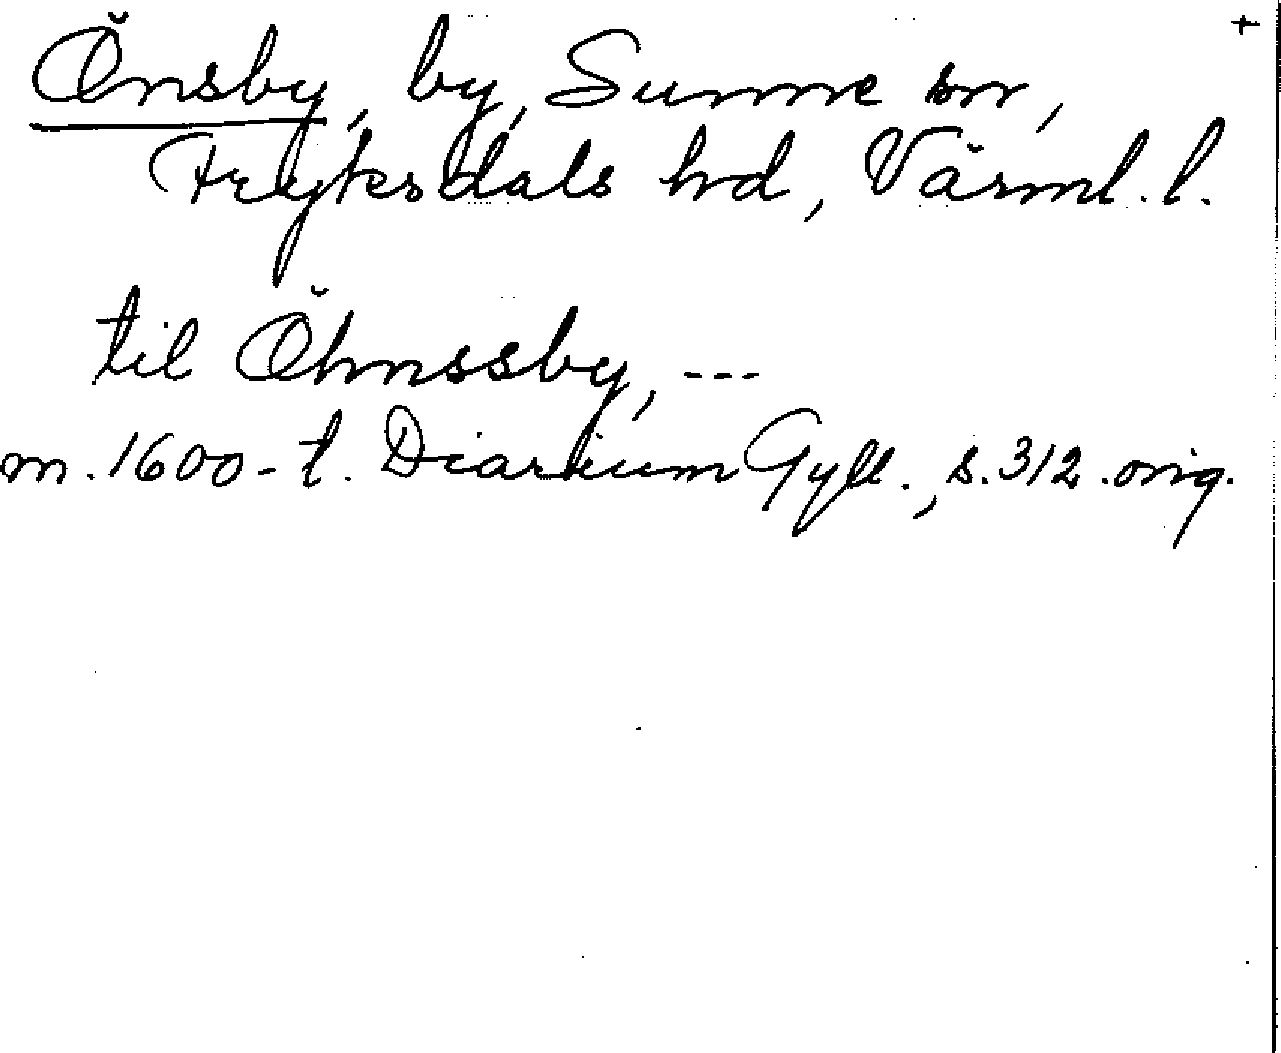 +
Önsby, by, Sunne sn,
Fryksdals hd, Värml. l.
til Öhnssby, ---
m. 1600-t. Diarium Gyll., s. 312. orig.